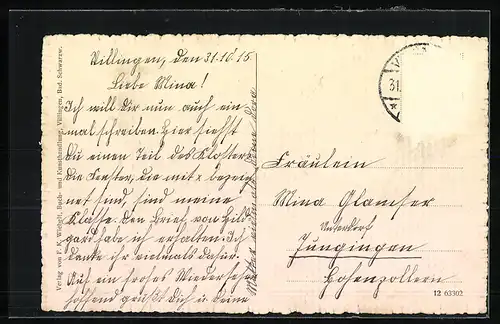 Villingen, den 31.10.15
Liebe Mina!
Ich will Dir nun auch ein
mal schreiben. Hier siehst
Du einen Teil des Kloster
die Fenster, die mit x bezeig
net sind, sind meine
Klasse. Den Brief von Hild
gard habe ich erhalten. Ich
danke ihr vielmals dafür.
Auf ein frohes Wiedersehen
hoffend grüßt Dich u. Deine
Verlag von F. K. Wiebelt, Buch- und Kunsthandlung, Villingen, Bad. Schwarzw.
31.
Fräulein
Mina Glamser
Unterdorf
Jungingen
Hohenzollern
12 63302